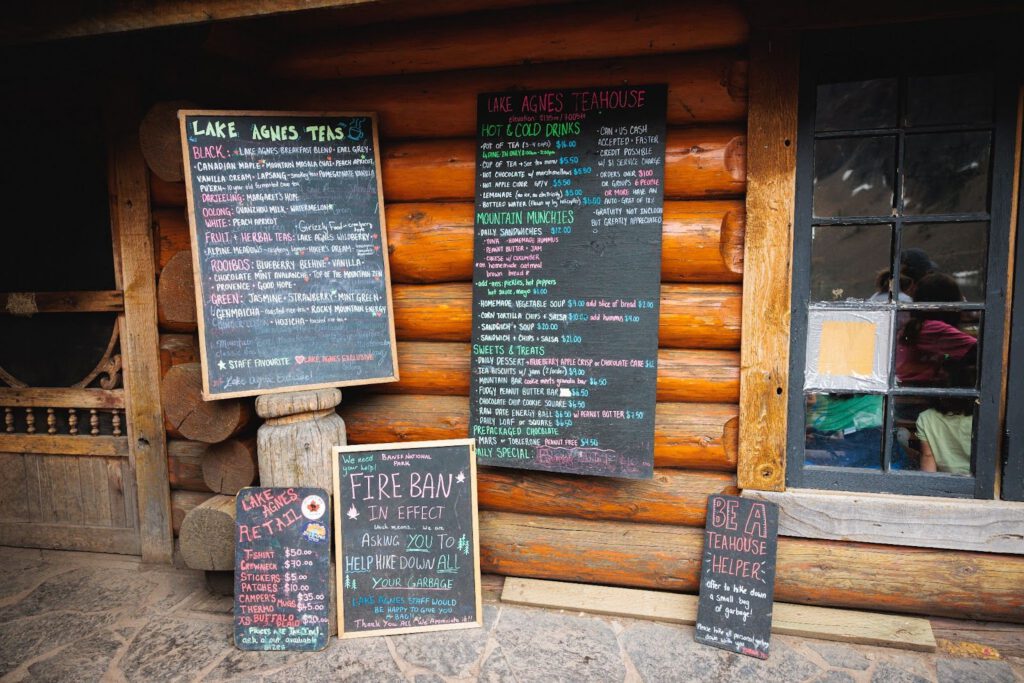 LAKE AGNES TEAS
BLACK: LAKE AGNES BREAKFAST BLEND · EARL GREY ·
CANADIAN MAPLE · MOUNTAIN MASALA CHAI · PEACH APRICOT
VANILLA CREAM · LAPSANG - smokey · POMEGRANATE VANILLA
PU'ERH: 10 year old fermented
DARJEELING: MARGARET'S HOPE
OOLONG: QUANGZHOU MILK · WATERMELON
WHITE: PEACH APRICOT
FRUIT + HERBAL TEAS: LAKE AGNES WILDBERRY
ALPINE MEADOWS
ROOIBOS: BLUEBERRY BEEHIVE · VANILLA
· CHOCOLATE MINT AVALANCHE · TOP OF THE MOUNTAIN ZEN
PROVENCE · GOOD HOPE
GREEN: JASMINE · STRAWBERRY · MINT GREEN
GENMAICHA - toasted rice tea · ROCKY MOUNTAIN ENERGY
· HOJICHA
★ STAFF FAVOURITE ♥ LAKE AGNES EXCLUSIVE
LAKE AGNES TEAHOUSE
elevation 2135m / 7005ft
HOT & COLD DRINKS
· POT OF TEA (3-4 cups) $16.00
· CUP OF TEA → See tea menu $5.50
· HOT CHOCOLATE w/ marshmallows $5.50
· HOT APPLE CIDER $5.50
· LEMONADE (no ice, no electricity) $5.00
· BOTTLED WATER $5.00
· CAN + US CASH
ACCEPTED - FASTER
· CREDIT POSSIBLE
w/ $1 SERVICE CHARGE
· ORDERS OVER $100
OR GROUPS 6 PEOPLE
OR MORE HAVE AN
AUTO-GRAT OF
· GRATUITY NOT INCLUDED
BUT GREATLY APPRECIATED
MOUNTAIN MUNCHIES
· DAILY SANDWICHES $12.00
· TUNA · HOMEMADE HUMMUS
· PEANUT BUTTER + JAM
· CHEESE w/ CUCUMBER
on homemade oatmeal
brown bread
· add-ons: pickles, hot peppers
hot sauce, mayo $1.00
· HOMEMADE VEGETABLE SOUP $9.00 add slice of bread $2.00
· CORN TORTILLA CHIPS & SALSA $10.00 add hummus $4.00
· SANDWICH + SOUP $20.00
· SANDWICH + CHIPS + SALSA $21.00
SWEETS & TREATS
· DAILY DESSERT → BLUEBERRY APPLE CRISP or CHOCOLATE CAKE
· TEA BISCUITS w/ jam (2/order) $9.00
· MOUNTAIN BAR cookie meets granola bar $6.50
· FUDGY PEANUT BUTTER BAR $6.50
· CHOCOLATE CHIP COOKIE SQUARE $6.50
· RAW DATE ENERGY BALL $6.50 w/ PEANUT BUTTER $7.50
· DAILY LOAF or SQUARE $6.50
PREPACKAGED CHOCOLATE
· MARS or TOBLERONE PEANUT FREE $4.50
DAILY SPECIAL:
LAKE AGNES
RETAIL
T-SHIRT $50.00
CREWNECK $70.00
STICKERS $5.00
PATCHES $10.00
CAMPER'S MUGS $35.00
THERMO $45.00
XS BUFFALO PLAID $20.00
PRICES ARE TAX IN!
ask about available
sizes
We need
your help!
BANFF NATIONAL
PARK
FIRE BAN
IN EFFECT
Which means... we are
ASKING YOU TO
HELP HIKE DOWN ALL
YOUR GARBAGE
· LAKE AGNES STAFF WOULD
BE HAPPY TO GIVE YOU
A BAG!!
THANK YOU ALL! WE APPRECIATE IT!
BE A
TEAHOUSE
HELPER
offer to hike down
a small bag
of garbage!
Please hike all personal garbage
down with you